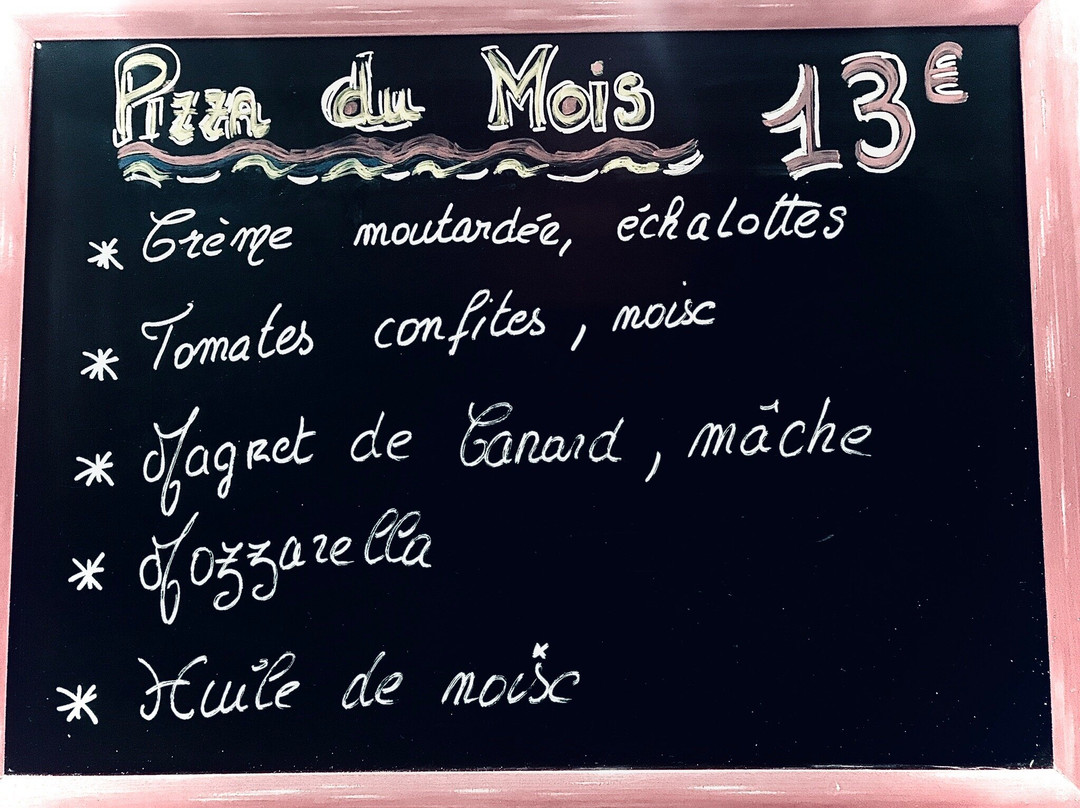 Pizza du Mois 13€
* Crème moutardée, échalottes
* Tomates confites, noisc
* Magret de Canard, mâche
* Mozzarella
* Huile de noisc